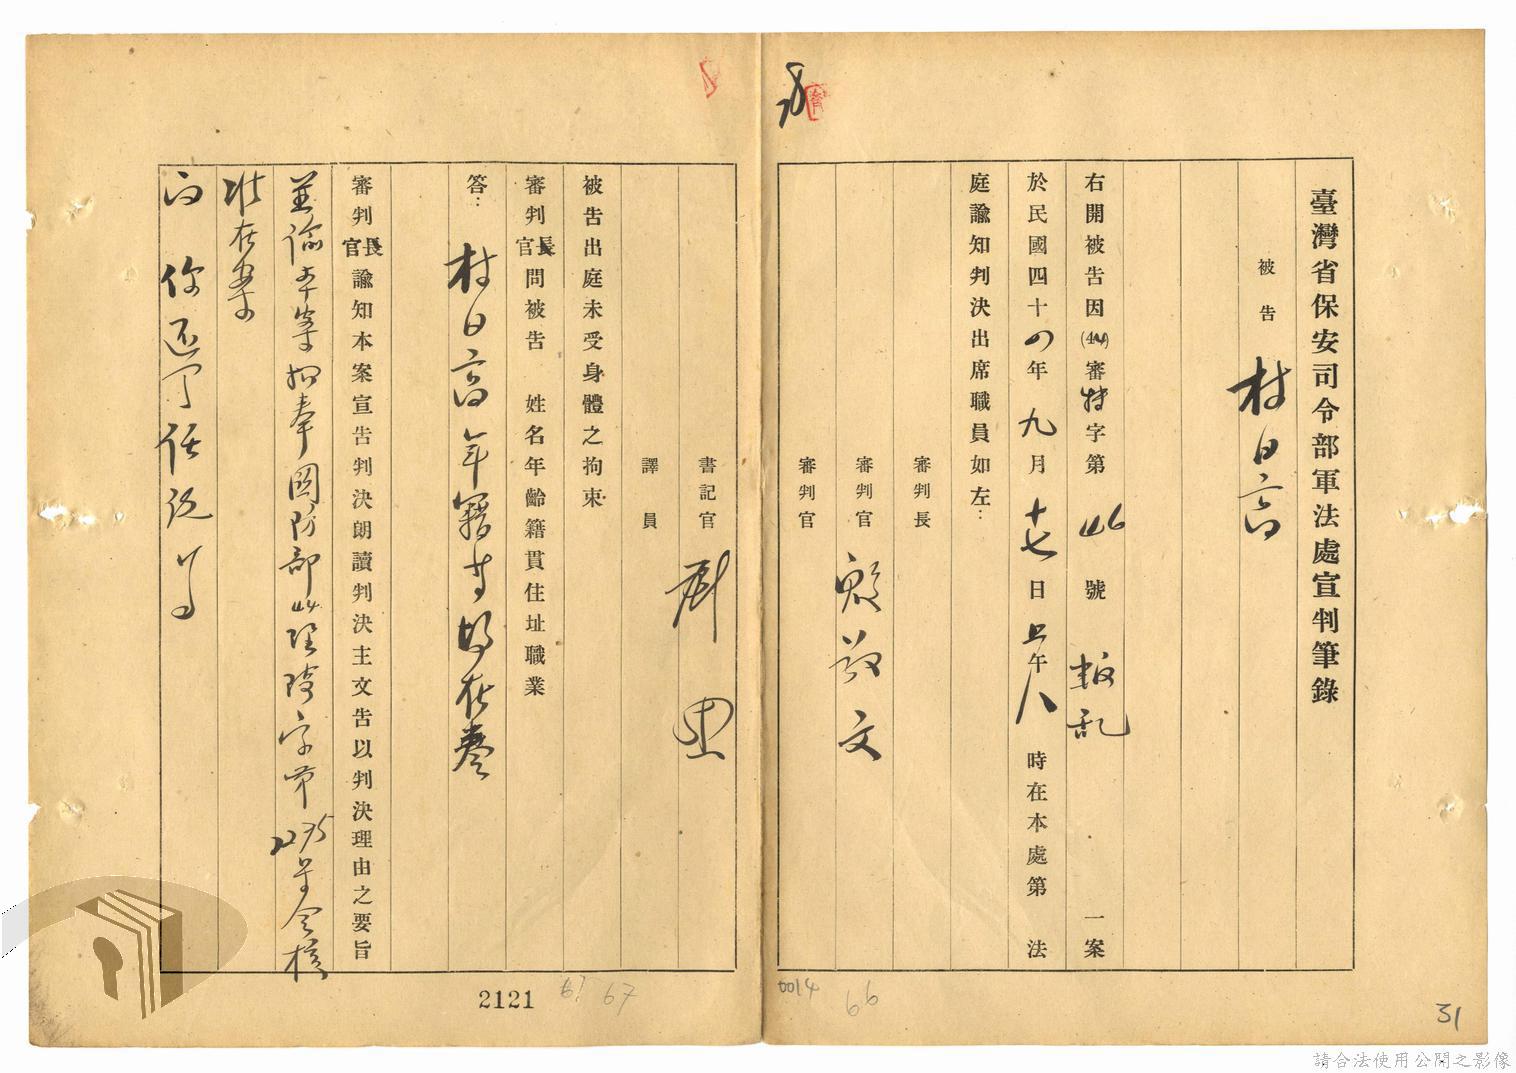 臺灣省保安司令部軍法處宣判筆錄
被告 林日高
右開被告因(44)審特字第 46 號 叛乱 一案
於民國四十四年九月十七日上午八時在本處第 法
庭諭知判決出席職員如左：
審判長
審判官 殷敬文
審判官
書記官
譯員
被告出庭未受身體之拘束
審判官長問被告 姓名年齡籍貫住址職業
答： 林日高 年籍等均在卷
審判官長諭知本案宣告判決朗讀判決主文告以判決理由之要旨
並諭本案相奉國防部44 字第2275号令核
准在案
問 你还有何話説嗎
2121
67
67
0014
66
31
請合法使用公開之影像